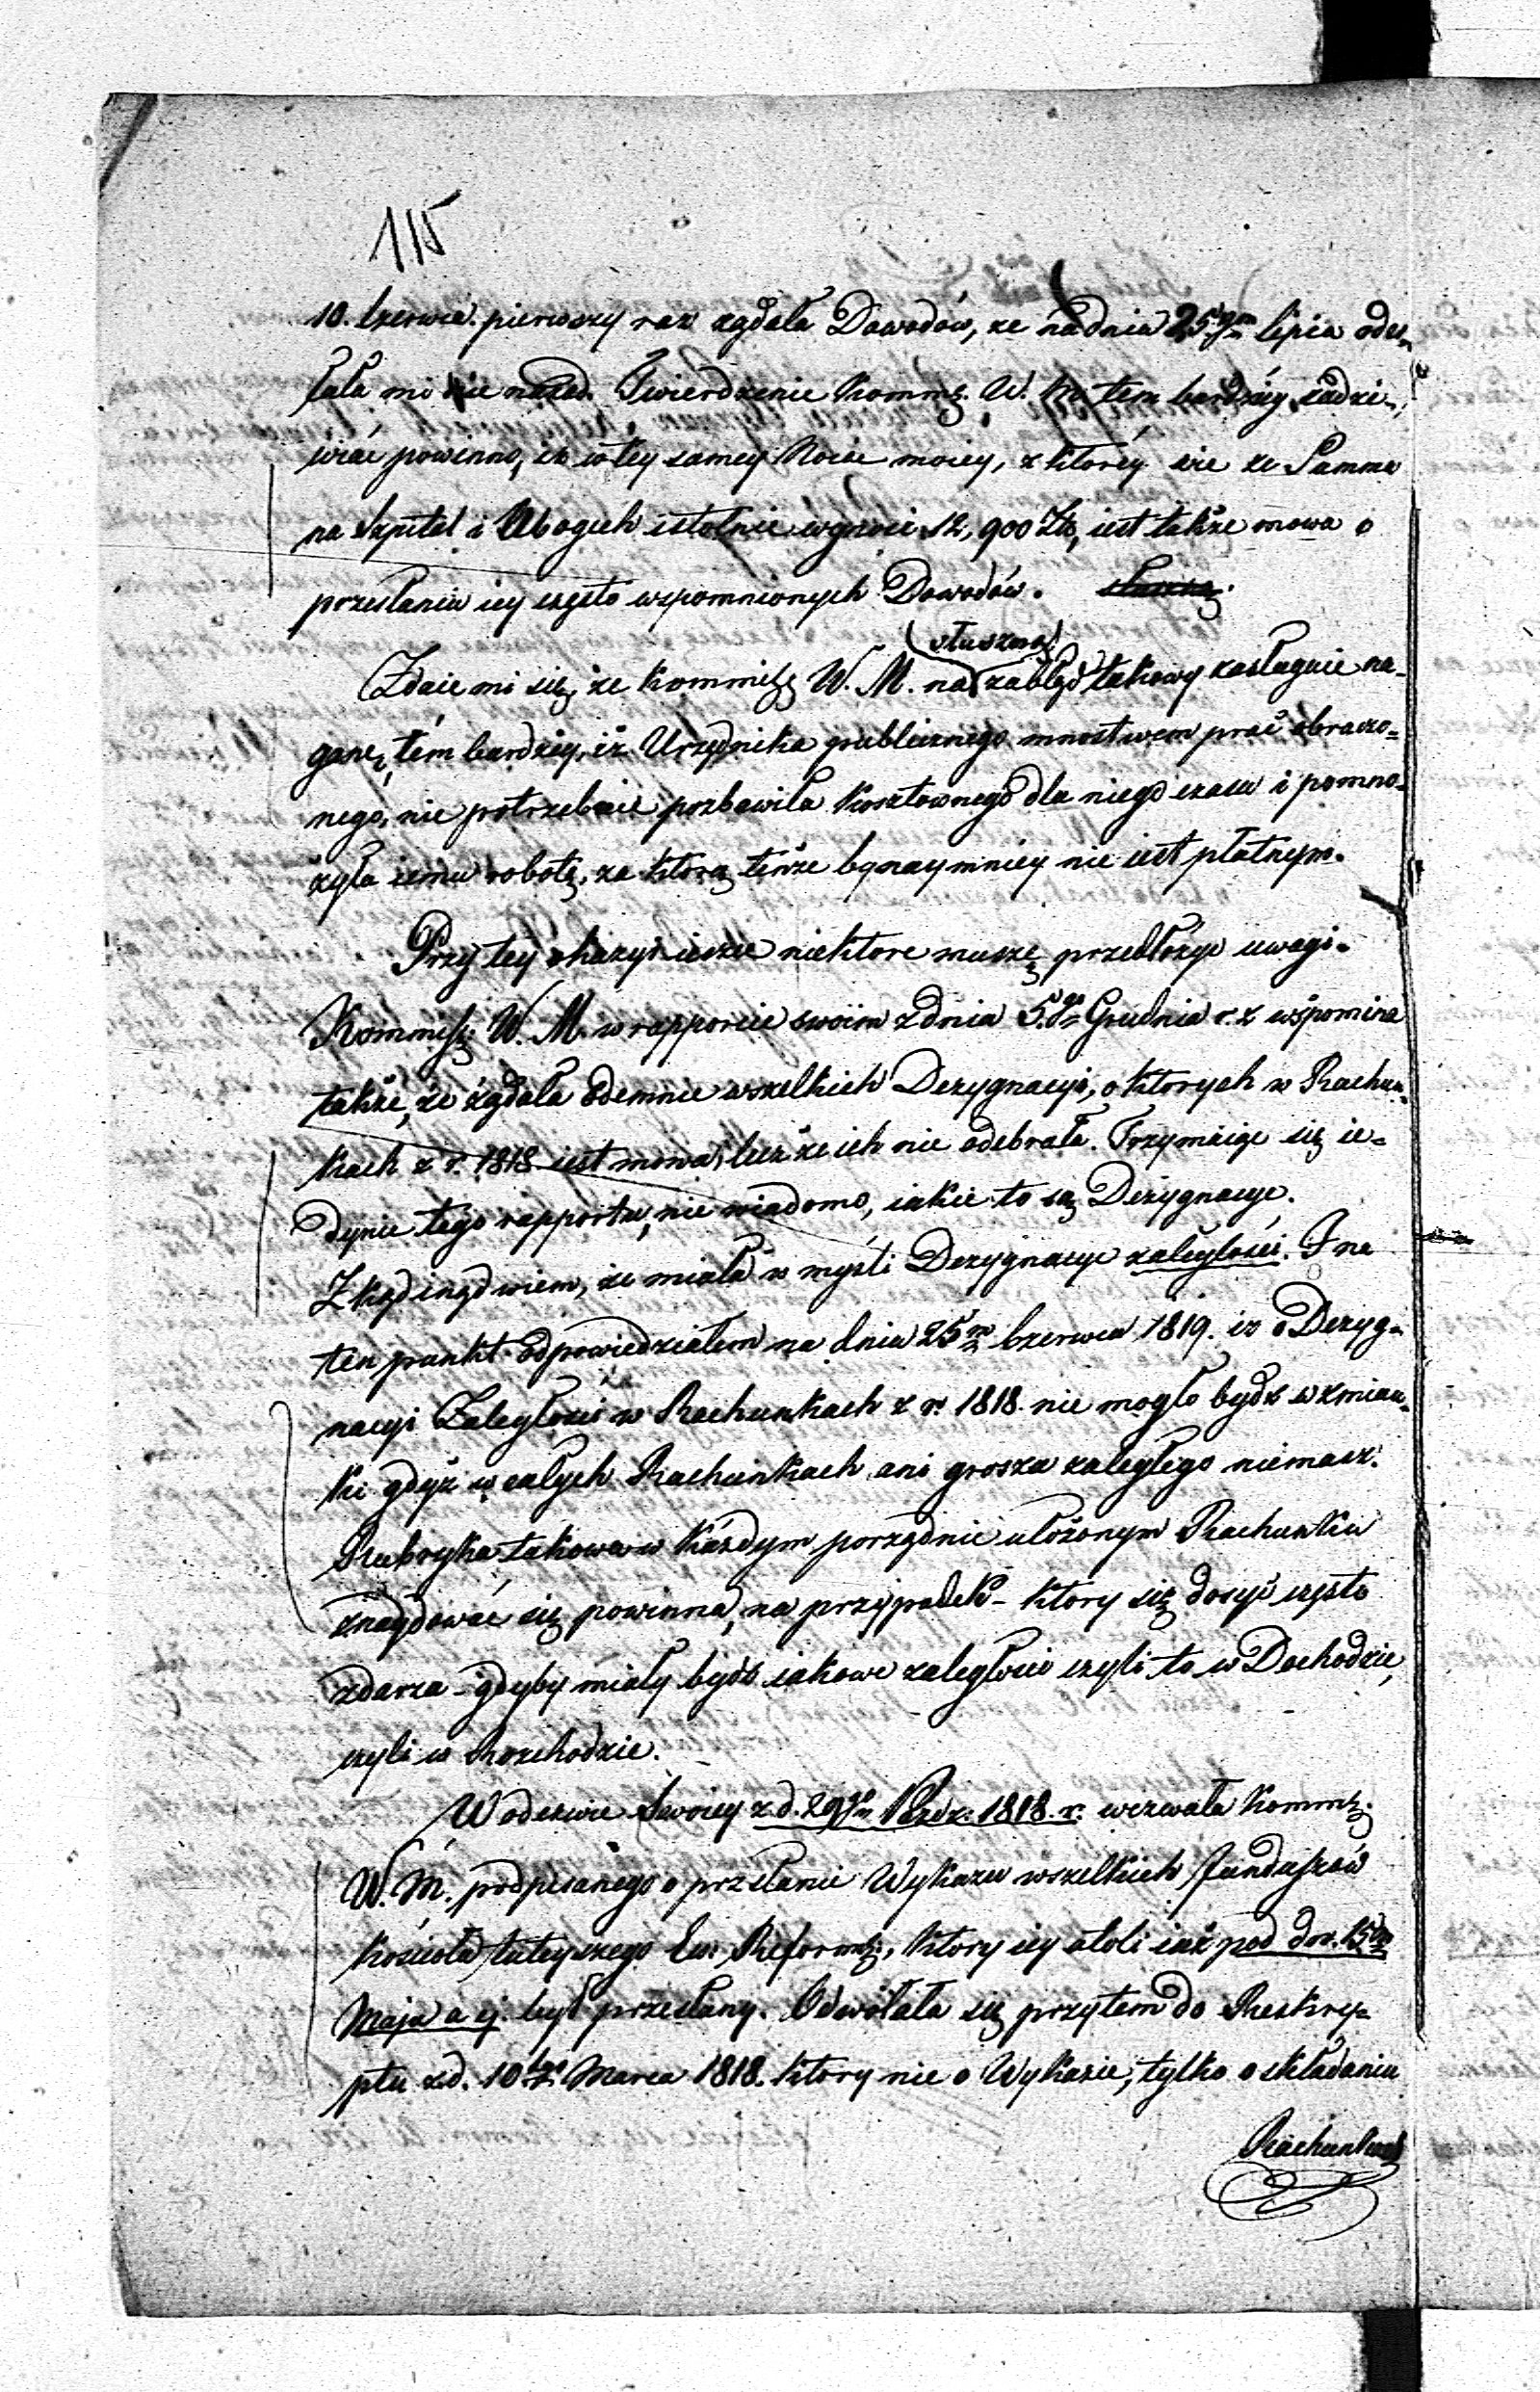 115
10. Czerwca. pierwszy raz rządała Dowodów, że na dniu 25tym lipca odes-
łała mi ie nazad. Twierdzenie Kommę. W. M. tem bardziey zadzi-
wiać powinno, iż w tey samey Nocie moiey, z którey wie że Summa
na Szpital i Ubogich istotnie wynosi 12,900 Zł, iest także mowa o
przesłaniu iey często wspomnionych Dowodów.
słuszną
Zdaie mi się, że Kommisę W. M. na zabłęd takowy zasługuie na-
ganę, tém bardziey, iż Urzędnika publicznego mnostwem prac obraczo-
nego, nie potrzebnie pozbawiła kosztownego dla niego czasu i pomno-
żyła iemu robotę, za ktorą tenże bynaymniey nie iest płatnym.
Przy tey okazyi ieszcze niektore muszę przedłożyć uwagi.
Kommisę W. M. w rapporcie swoim z dnia 5.go Grudnia r. z wspomina
także, że żądała odemnie wszelkich Dezygnacyi, o ktorych w Rachun-
kach z r. 1818 iest mowa, lecz że ich nie odebrała. Trzymaiąc się ie-
dynie tego rapportu, nie wiadomo, iakie to są Dezygnacye.
Zkąd inąd wiem, że miała w myśli Dezygnacye zaległości. I na
ten punkt odpowiedziałem na dniu 25m Czerwca 1819. iż o Dezyg-
nacyi Zaległości w Rachunkach z r. 1818 nie mogło bydź wzmian-
ki gdyż w całych Rachunkach ani grosza zaległego niemasz.
Rubryka takowa w każdym porządnie ułożonym Rachunku
znaydować się powinna, na przypadek - ktory się dosyć często
zdarza - gdyby miały bydź iakowe zaległości czyli to w Dochodzie,
czyli w Rozchodzie.
W odezwie Swoiey z d. 29go Paźdz. 1818. r. wezwała Kommę.
W. M. podpisanego o przesłanie Wykazu wszelkich Funduszów
Kościoła tuteyszego Ew. Reformę., ktory iey atoli iuż pod dn. 15m
Maja a ej. był przesłany. Odwołała się przytem do Reskryp-
ptu z d. 10go Marca 1818. ktory nie o Wykazie, tylko o składaniu
Rachunków